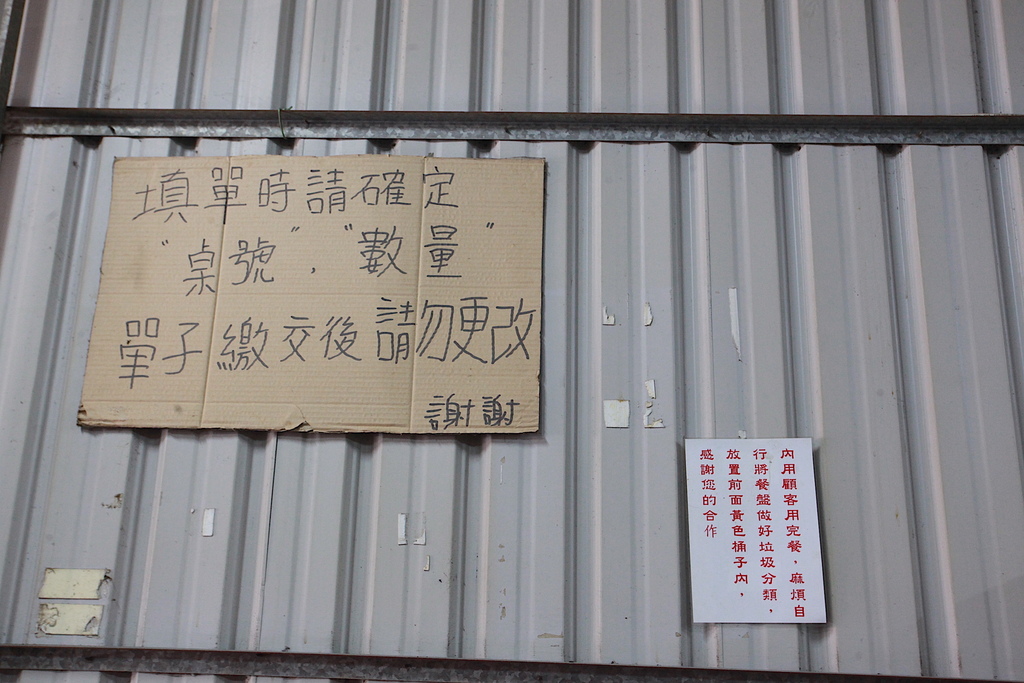 填單時請確定
"桌號","數量"
單子繳交後請勿更改
謝謝
內用顧客用完餐，麻煩自
行將餐盤做好垃圾分類，
放置前面黃色桶子內，
感謝您的合作